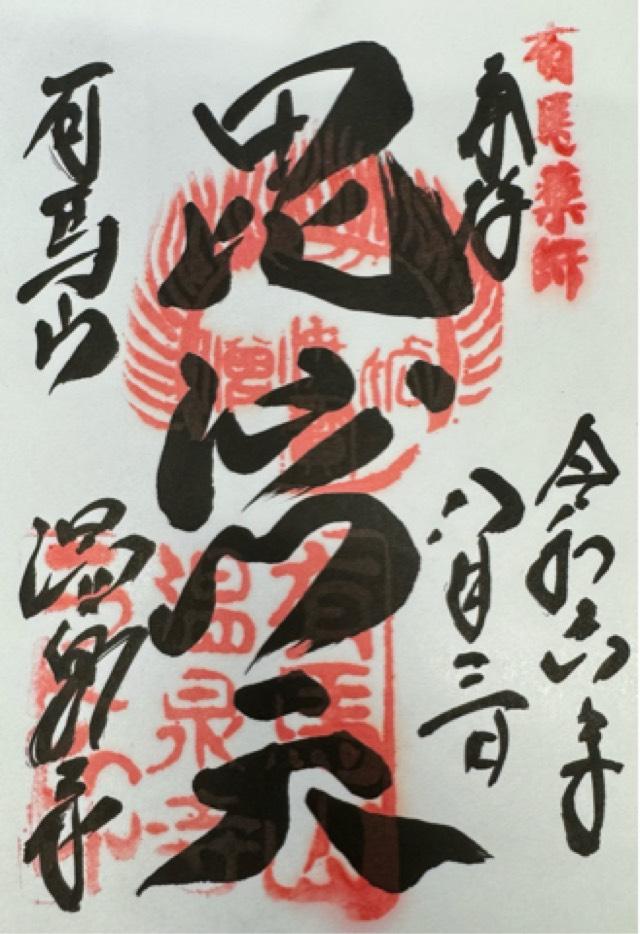 有馬薬師
奉拝
令和六年
八月三日
毘沙門天
有馬山
温泉寺
有馬山
温泉寺